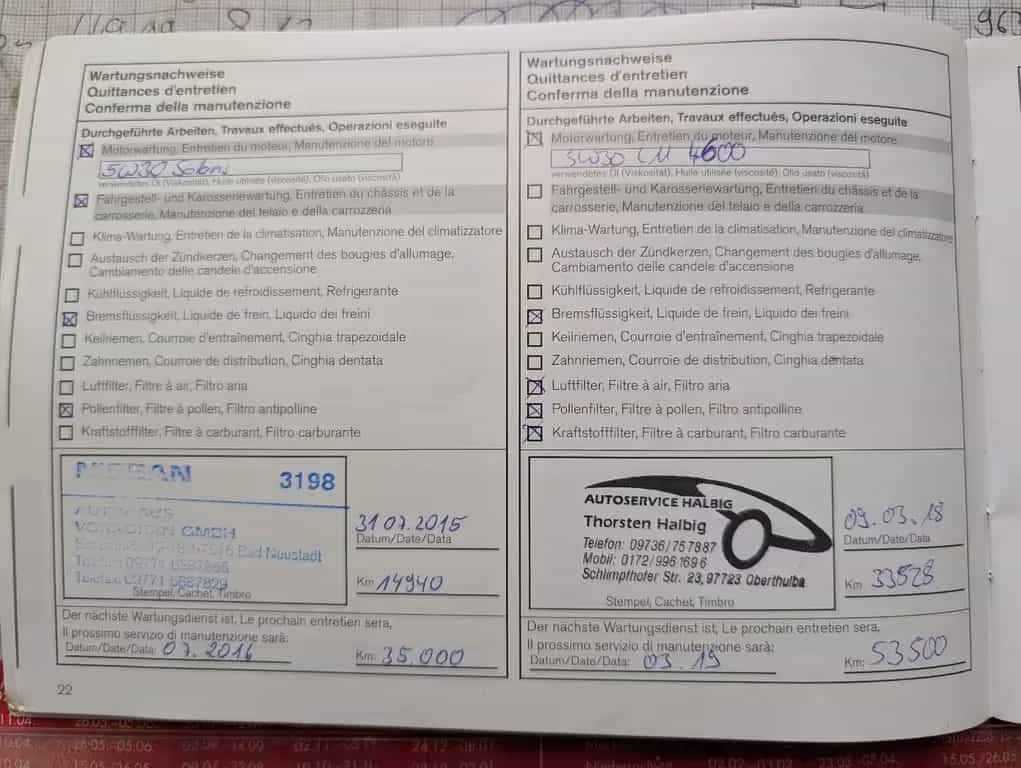 Wartungsnachweise
Quittances d'entretien
Conferma della manutenzione
Durchgeführte Arbeiten, Travaux effectués, Operazioni eseguite
Motorwartung, Entretien du moteur, Manutenzione del motore
5W30
verwendetes Öl (Viskosität), Huile utilisée (viscosité), Olio usato (viscosità)
Fahrgestell- und Karosseriewartung, Entretien du châssis et de la
carrosserie, Manutenzione del telaio e della carrozzeria
Klima-Wartung, Entretien de la climatisation, Manutenzione del climatizzatore
Austausch der Zündkerzen, Changement des bougies d'allumage,
Cambiamento delle candele d'accensione
Kühlflüssigkeit, Liquide de refroidissement, Refrigerante
Bremsflüssigkeit, Liquide de frein, Liquido dei freini
Keilriemen, Courroie d'entraînement, Cinghia trapezoidale
Zahnriemen, Courroie de distribution, Cinghia dentata
Luftfilter, Filtre à air, Filtro aria
Pollenfilter, Filtre à pollen, Filtro antipolline
Kraftstofffilter, Filtre à carburant, Filtro carburante
NISSAN 3198
GMBH
Bad Neustadt
Telefax 09771 6887829
Stempel, Cachet, Timbro
31 07.2015
Datum/Date/Data
Km 14940
Der nächste Wartungsdienst ist, Le prochain entretien sera,
Il prossimo servizio di manutenzione sarà:
Datum/Date/Data: 07.2016
Km: 35.000
22
Wartungsnachweise
Quittances d'entretien
Conferma della manutenzione
Durchgeführte Arbeiten, Travaux effectués, Operazioni eseguite
Motorwartung, Entretien du moteur, Manutenzione del motore
5W30 LM 4600
verwendetes Öl (Viskosität), Huile utilisée (viscosité), Olio usato (viscosità)
Fahrgestell- und Karosseriewartung, Entretien du châssis et de la
carrosserie, Manutenzione del telaio e della carrozzeria
Klima-Wartung, Entretien de la climatisation, Manutenzione del climatizzatore
Austausch der Zündkerzen, Changement des bougies d'allumage,
Cambiamento delle candele d'accensione
Kühlflüssigkeit, Liquide de refroidissement, Refrigerante
Bremsflüssigkeit, Liquide de frein, Liquido dei freini
Keilriemen, Courroie d'entraînement, Cinghia trapezoidale
Zahnriemen, Courroie de distribution, Cinghia dentata
Luftfilter, Filtre à air, Filtro aria
Pollenfilter, Filtre à pollen, Filtro antipolline
Kraftstofffilter, Filtre à carburant, Filtro carburante
AUTOSERVICE HALBIG
Thorsten Halbig
Telefon: 09736/757887
Mobil: 0172/9961696
Schlimpfhofer Str. 23, 97723 Oberthulba
Stempel, Cachet, Timbro
09.03.18
Datum/Date/Data
Km 33528
Der nächste Wartungsdienst ist, Le prochain entretien sera,
Il prossimo servizio di manutenzione sarà:
Datum/Date/Data: 03.19
Km: 53500